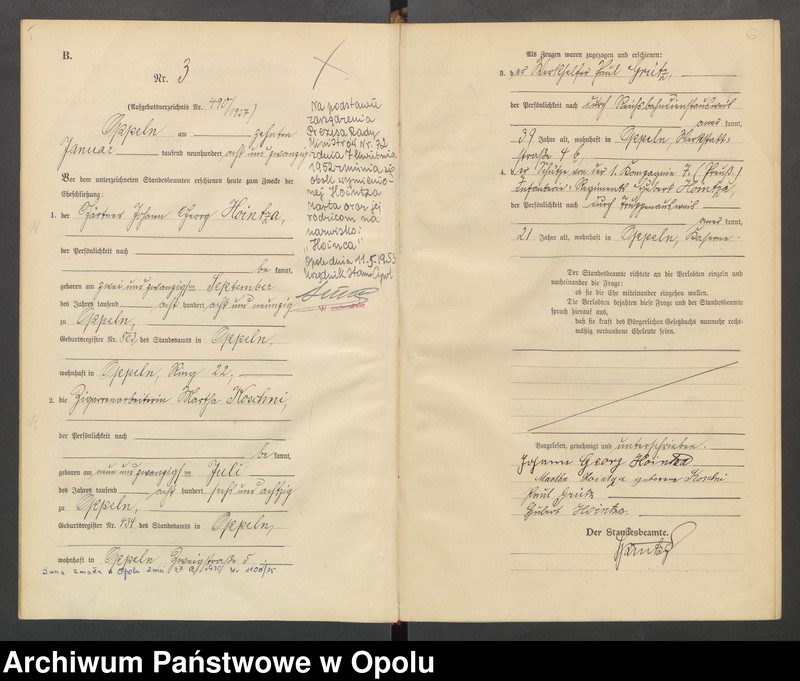 B.
Nr. 3
(Aufgebotsverzeichnis Nr. 490/1927)
Oppeln am zehnten
Januar tausend neunhundert acht und zwanzig
Vor dem unterzeichneten Standesbeamten erschienen heute zum Zwecke der
Eheschließung:
1. der Gärtner Johann Georg Hointza,
der Persönlichkeit nach
be kannt,
geboren am zwei und zwanzigsten September
des Jahres tausend acht hundert acht und neunzig
zu Oppeln,
Geburtsregister Nr. des Standesamts in Oppeln,
wohnhaft in Oppeln, Ring 22.
2. die Zigarrenarbeiterin Martha Koschni,
der Persönlichkeit nach
be kannt,
geboren am neun und zwanzigsten Juli
des Jahres tausend acht hundert sechs und achtzig
zu Oppeln,
Geburtsregister Nr. 434 des Standesamts in Oppeln,
wohnhaft in Oppeln, Zweigstraße 5
Żona zmarła w Opolu dnia 1975 Nr 1100/75
Na podstawie
zarządzenia
Prezesa Rady
Ministrów Nr. 72
z dnia 7 kwietnia
1952 zmienia się
obok wymienio-
nej Hointza
Marta oraz jej
rodzicom na
nazwisko:
"Hoinca"
Opole dnia 11.5.1953
Urzędnik Stanu Cywil
Als Zeugen waren zugezogen und erschienen:
3. der Werkhelfer Paul Grütz,
der Persönlichkeit nach durch Reichsbahndienstausweis
aner kannt,
39 Jahre alt, wohnhaft in Oppeln, Werkstatt-
straße 4 b,
4. der Schütze von der 1. Kompagnie 7. (Preuß.)
Infanterie-Regiments Hubert Hointza,
der Persönlichkeit nach durch Truppenausweis
aner kannt,
21 Jahre alt, wohnhaft in Oppeln, Kaserne.
Der Standesbeamte richtete an die Verlobten einzeln und
nacheinander die Frage:
ob sie die Ehe miteinander eingehen wollen.
Die Verlobten bejahten diese Frage und der Standesbeamte
sprach hierauf aus,
daß sie kraft des Bürgerlichen Gesetzbuchs nunmehr recht-
mäßig verbundene Eheleute seien.
Vorgelesen, genehmigt und unterschrieben.
Johann Georg Hointza
Martha Hointza geborene Koschni
Paul Grütz
Hubert Hointza.
Der Standesbeamte.
Archiwum Państwowe w Opolu